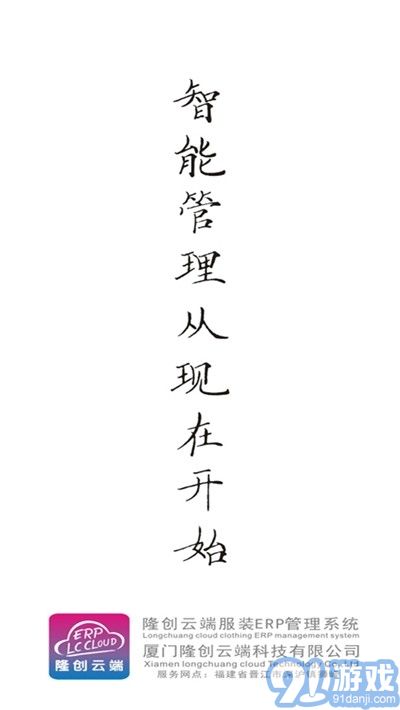 智能管理从现在开始
ERP
LC CLOUD
隆创云端
隆创云端服装ERP管理系统
Longchuang cloud clothing ERP management system
厦门隆创云端科技有限公司
Xiamen longchuang cloud Technology Co., Ltd
服务网点：福建省晋江市深沪镇狮峰
91游戏
91danji.com